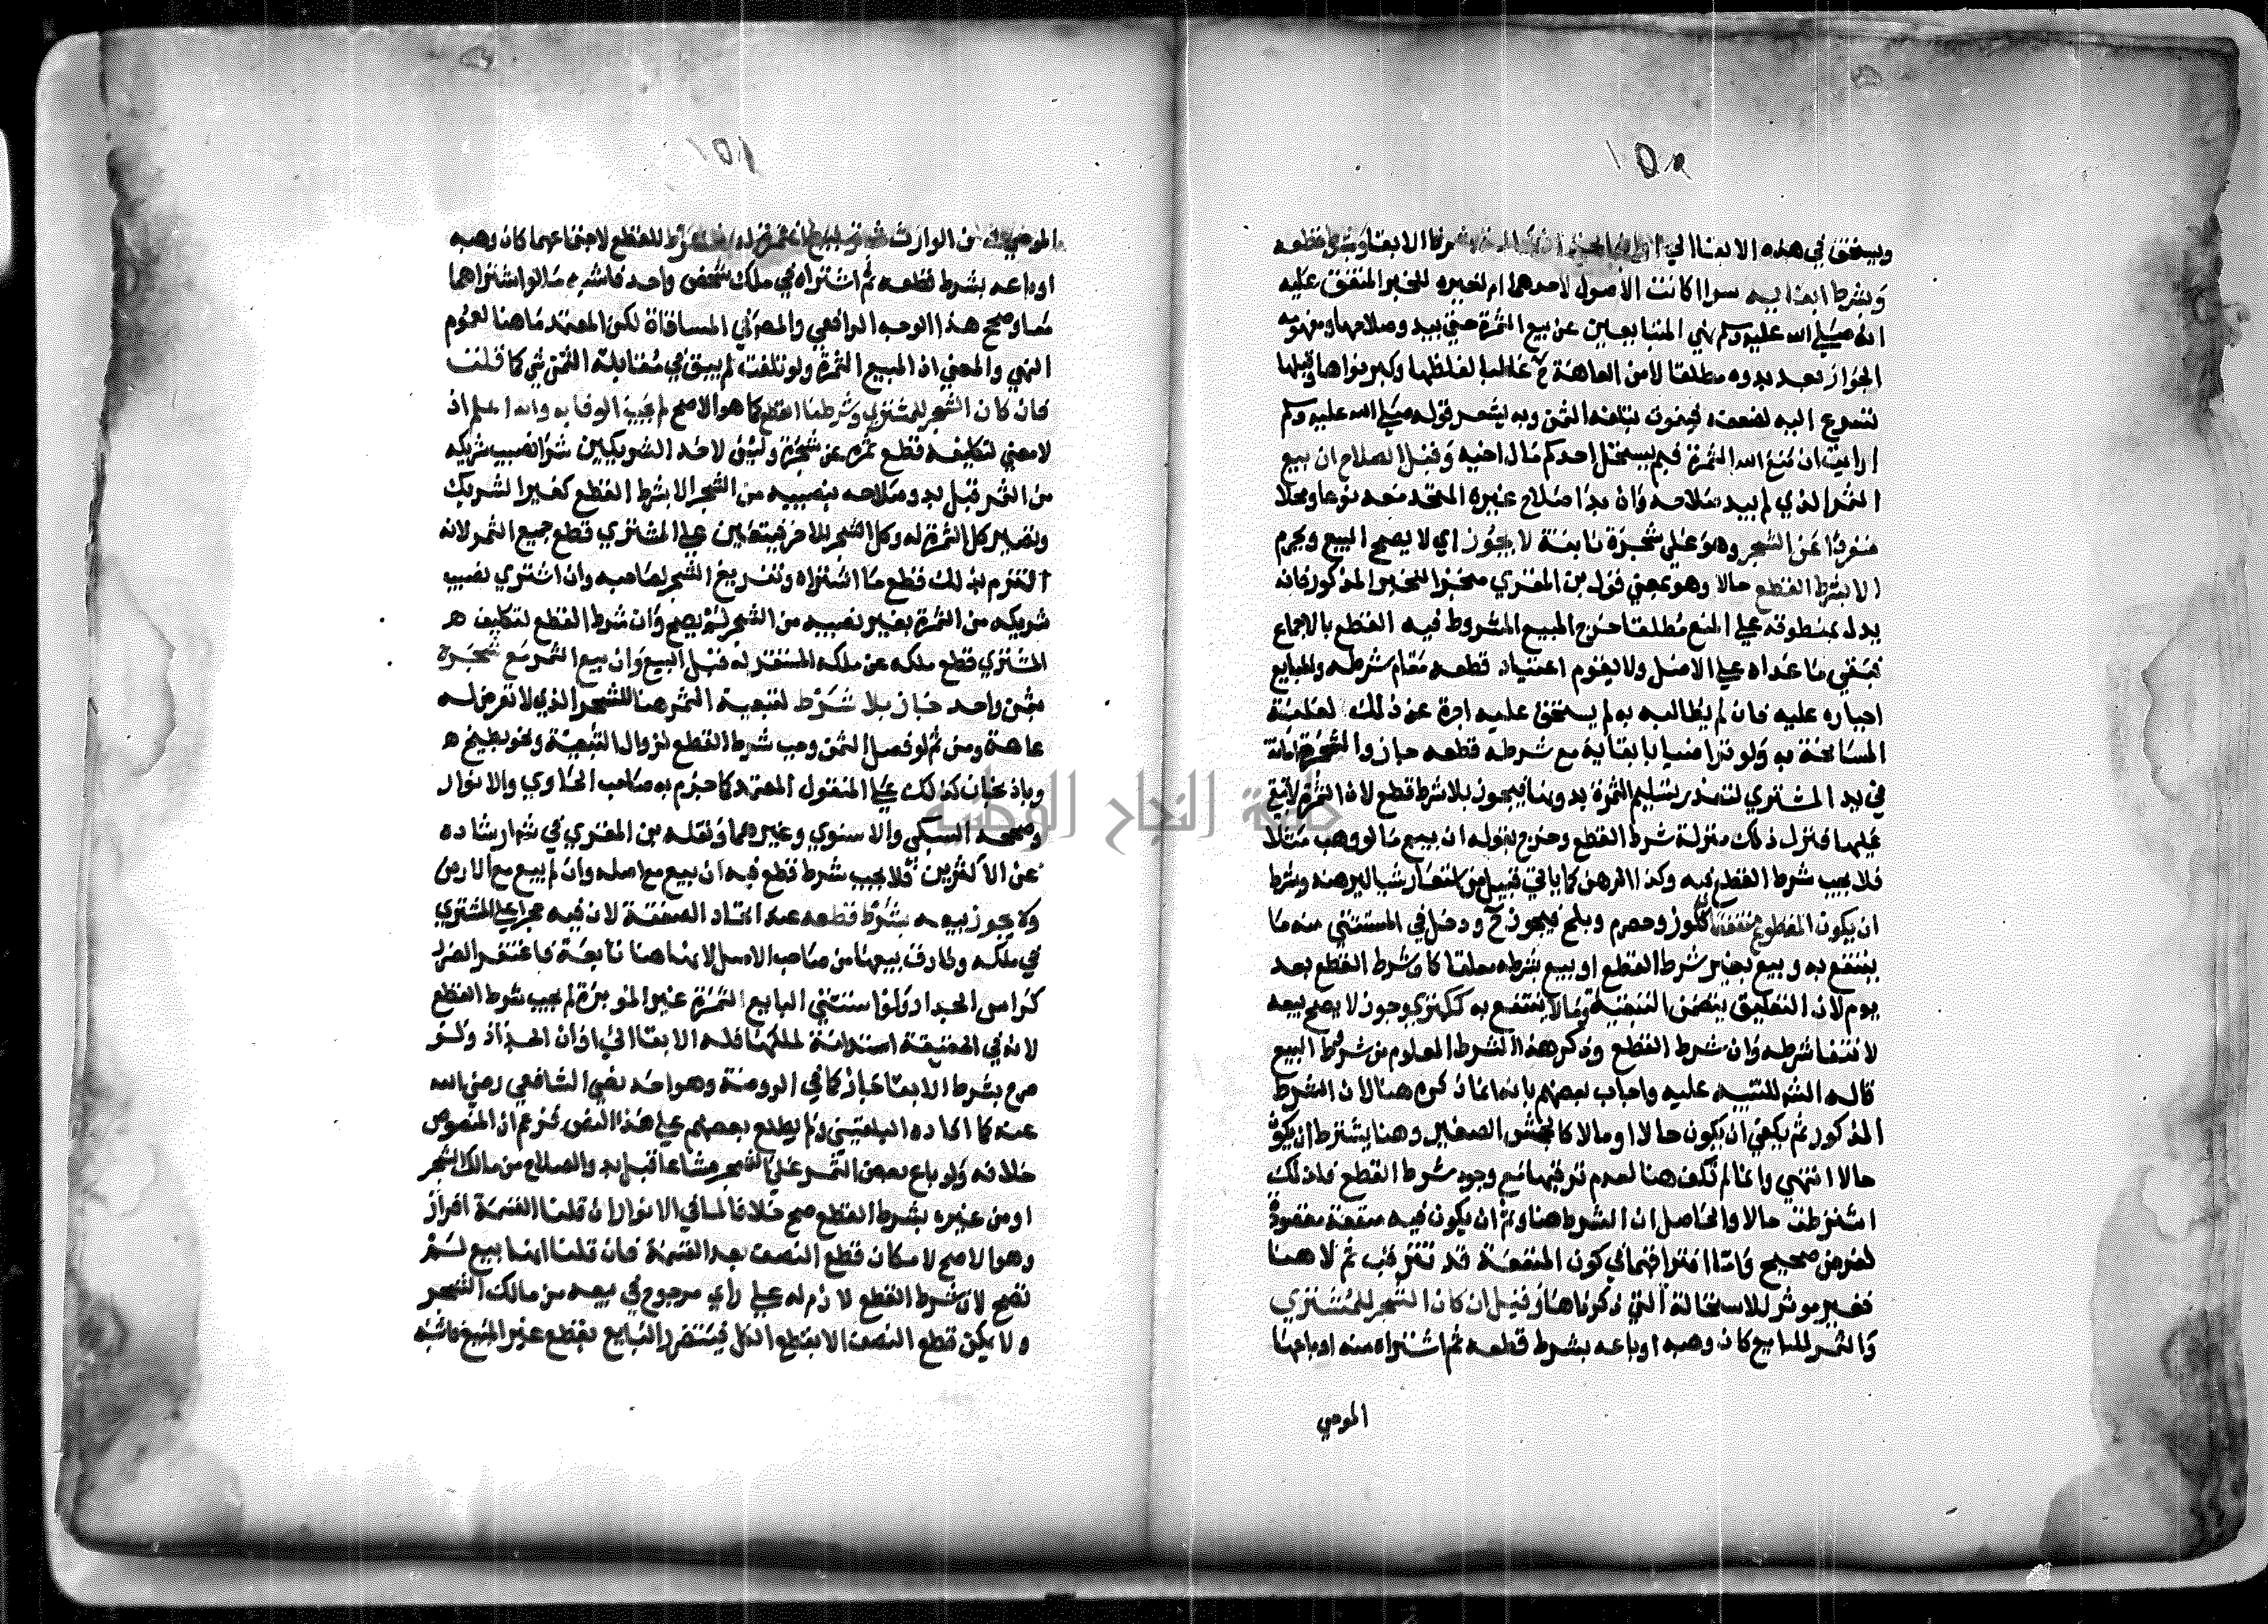 ١٥٨
ويستحق في هذه الابقاا الي اوان الجذاذ للعادة وبشرط الابقا وبشرط قطعه
وبشرط ابقايه سوا كانت الاصول لاحدهما ام لغيره للخبر المتفق عليه
انه صلي الله عليه وسلم نهي المتبايعين عن بيع الثمرة حتي يبدو صلاحها ومفهومه
الجواز بعد بدوه مطلقا لامن العاهة ح غالبا لغلظها وكبر نواها وقبلها
تسرع اليه لضعفه فيفوت بتلفه الثمن وبه يشعر قوله صلي الله عليه وسلم
ارايت ان منع الله الثمرة فبم يستحل احدكم مال اخيه وقبل الصلاح ان بيع
الثمر الذي لم يبد صلاحه وان بدا صلاح غيره المتحد معه نوعا ومحلا
منفردا عن الشجر وهو علي شجرة نابتة لا يجوز اي لا يصح البيع ويحرم
الا بشرط القطع حالا وهو بمعني قول بن المقري منجزا للخبر المذكور فانه
يدل بمنطوقه علي المنع مطلقا خرج المبيع المشروط فيه القطع بالاجماع
فبقي ما عداه علي الاصل ولا يقوم اعتياد قطعه مقام شرطه وللبايع
اجباره عليه فان لم يطالبه به لم يستحق عليه اجرة عن ذلك لغلبة
المسامحة به ولو تراضيا بابقايه مع شرطه قطعه جاز والشجرة امانة
في يد المشتري لتعذر تسليم الثمرة بدونها فيجوز بلا شرط قطع لان الثمرة لا تبقي
عليها فنزل ذلك منزلة شرط القطع وخرج بقوله ان بيع ما لو وهب مثلا
فلا يجب شرط القطع فيه وكذا الرهن كما ياتي قبيل من استعار شيا ليرهنه وبشرط
ان يكون المقطوع منتفعا به كلوز وحصرم وبلح فيجوز ح ودخل في المستثني منه ما
ينتفع به وبيع بغير شرط القطع او بيع بشرطه معلقا كان شرط القطع بعد
يوم لان التعليق يتضمن التبقية وما لا ينتفع به ككمثري وجوز لا يصح بيعه
لانتفا شرطه وان شرط القطع وذكر هذا الشرط المعلوم من شروط البيع
قاله الشر للتنبيه عليه واجاب بعضهم بانه انما ذكره هنا لان الشرط
المذكور ثم يكفي ان يكون حالا او مالا كالجحش الصغير وهنا يشترط ان يكون
حالا انتهي وانما لم تكف هنا لعدم ترقبها مع وجود شرط القطع فلذلك
اشترطت حالا والحاصل ان الشرط هنا وثم ان يكون فيه منفعة مقصودة
لغرض صحيح وانما افترقا فيما في كون المنفعة قد تترقب ثم لا هنا
فغير موثر للاستحالة التي ذكرناها وقيل ان كان الشجر للمشتري
والثمر للبايع كان وهبه او باعه بشرط قطعه ثم اشتراه منه او باعها
الموصي
١٥٨
الموصي له من الوارث لاجتماعهما كان وهبه
او باعه بشرط قطعه ثم اشتراه في ملك شخص واحد فاشبه ما لو اشتراهما
معا وصحح هذا الوجه الرافعي والمص في المساقاة لكن المعتمد ما هنا لعموم
النهي والمعني اذ المبيع الثمرة ولو تلفت لم يبق في مقابلة الثمن شي كما قلت
فان كان الشجر للمشتري وشرطنا القطع كما هو الاصح لم يجب الوفا به والله اعلم اذ
لا معني لتكليفه قطع ثمره عن شجره وليس لاحد الشريكين شرا نصيب شريكه
من الثمر قبل بدو صلاحه بنصيبه من الشجر الا بشرط القطع كغير الشريك
وتصير كل الثمرة له وكل الشجر للاخر فيتعين علي المشتري قطع جميع الثمر لانه
التزم بذلك قطع ما اشتراه وتفريغ الشجر لصاحبه وان اشتري نصيب
شريكه من الثمرة بغير نصيبه من الشجر لم يصح وان شرط القطع لتكليف ه
المشتري قطع ملكه عن ملكه المستقر له قبل البيع وان بيع الثمر مع شجرة
بثمن واحد جاز بلا شرط لتبعية الثمر هنا للشجر الذي لا تعرض له
عاهة ومن ثم لو فصل الثمن وجب شرط القطع لزوال التبعية ونحو بطيخ ه
وباذنجان كذلك علي المنقول المعتمد كما جزم به صاحب الحاوي والانوار
وصححه السبكي والاسنوي وغيرهما ونقله بن المقري في شرح ارشاده
عن الاكثرين فلا يجب شرط قطع فيه ان بيع مع اصله وان لم يبع مع الارض
ولا يجوز بيعه بشرط قطعه عند اتحاد الصفقة لان فيه حجرا علي المشتري
في ملكه وفارق بيعها من صاحب الاصل لانها هنا تابعة فاغتفر الغرر
كاس الجدار ولو استثني البايع الثمرة غير الموبرة لم يجب شرط القطع
لانه في الحقيقة استدامة لملكها فله الابقا الي اوان الجذاذ ولو
صرح بشرط الابقا جاز كما في الروضة وهو احد نصي الشافعي رضي الله
عنه كما افاده البلقيني ولم يطلع بعضهم علي هذا النص فزعم ان المنصوص
خلافه ولو باع بعض الثمر علي الشجر مشاعا قبل بدو الصلاح من مالك الشجر
او من غيره بشرط القطع صح خلافا لما في الانوار ان قلنا القسمة افراز
وهو الاصح لامكان قطع النصف بعد القسمة فان قلنا انها بيع لم
تصح لان شرط القطع لازم له علي راي مرجوح في بيعه من مالك الشجر
ولا يمكن قطع النصف الا بقطع الكل فيتضرر البايع بقطع غير المبيع فاشبه